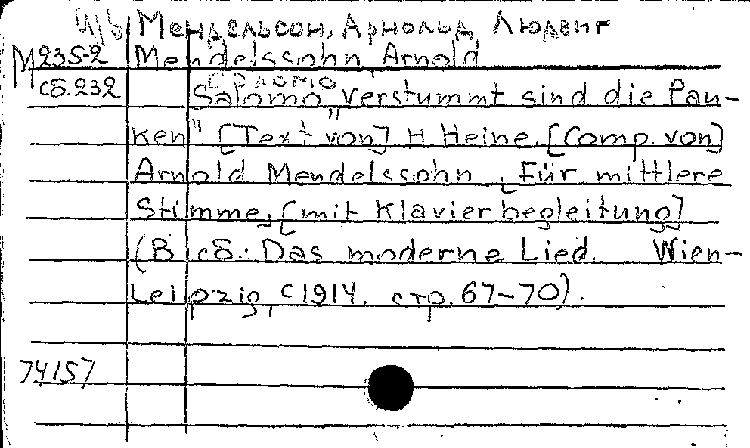 Ч/б Мендельсон, Арнольд Людвиг
М 235-2 Mendelssohn Arnold
сб.232 Salomo
"Salomo" verstummt sind die Pau-
ken" [Text von] H. Heine. [Comp. von]
Arnold Mendelssohn, [Für mittlere
Stimme, [mit Klavierbegleitung]
(В сб.: Das moderne Lied. Wien-
Leipzig, c1914. стр. 67-70).
74157